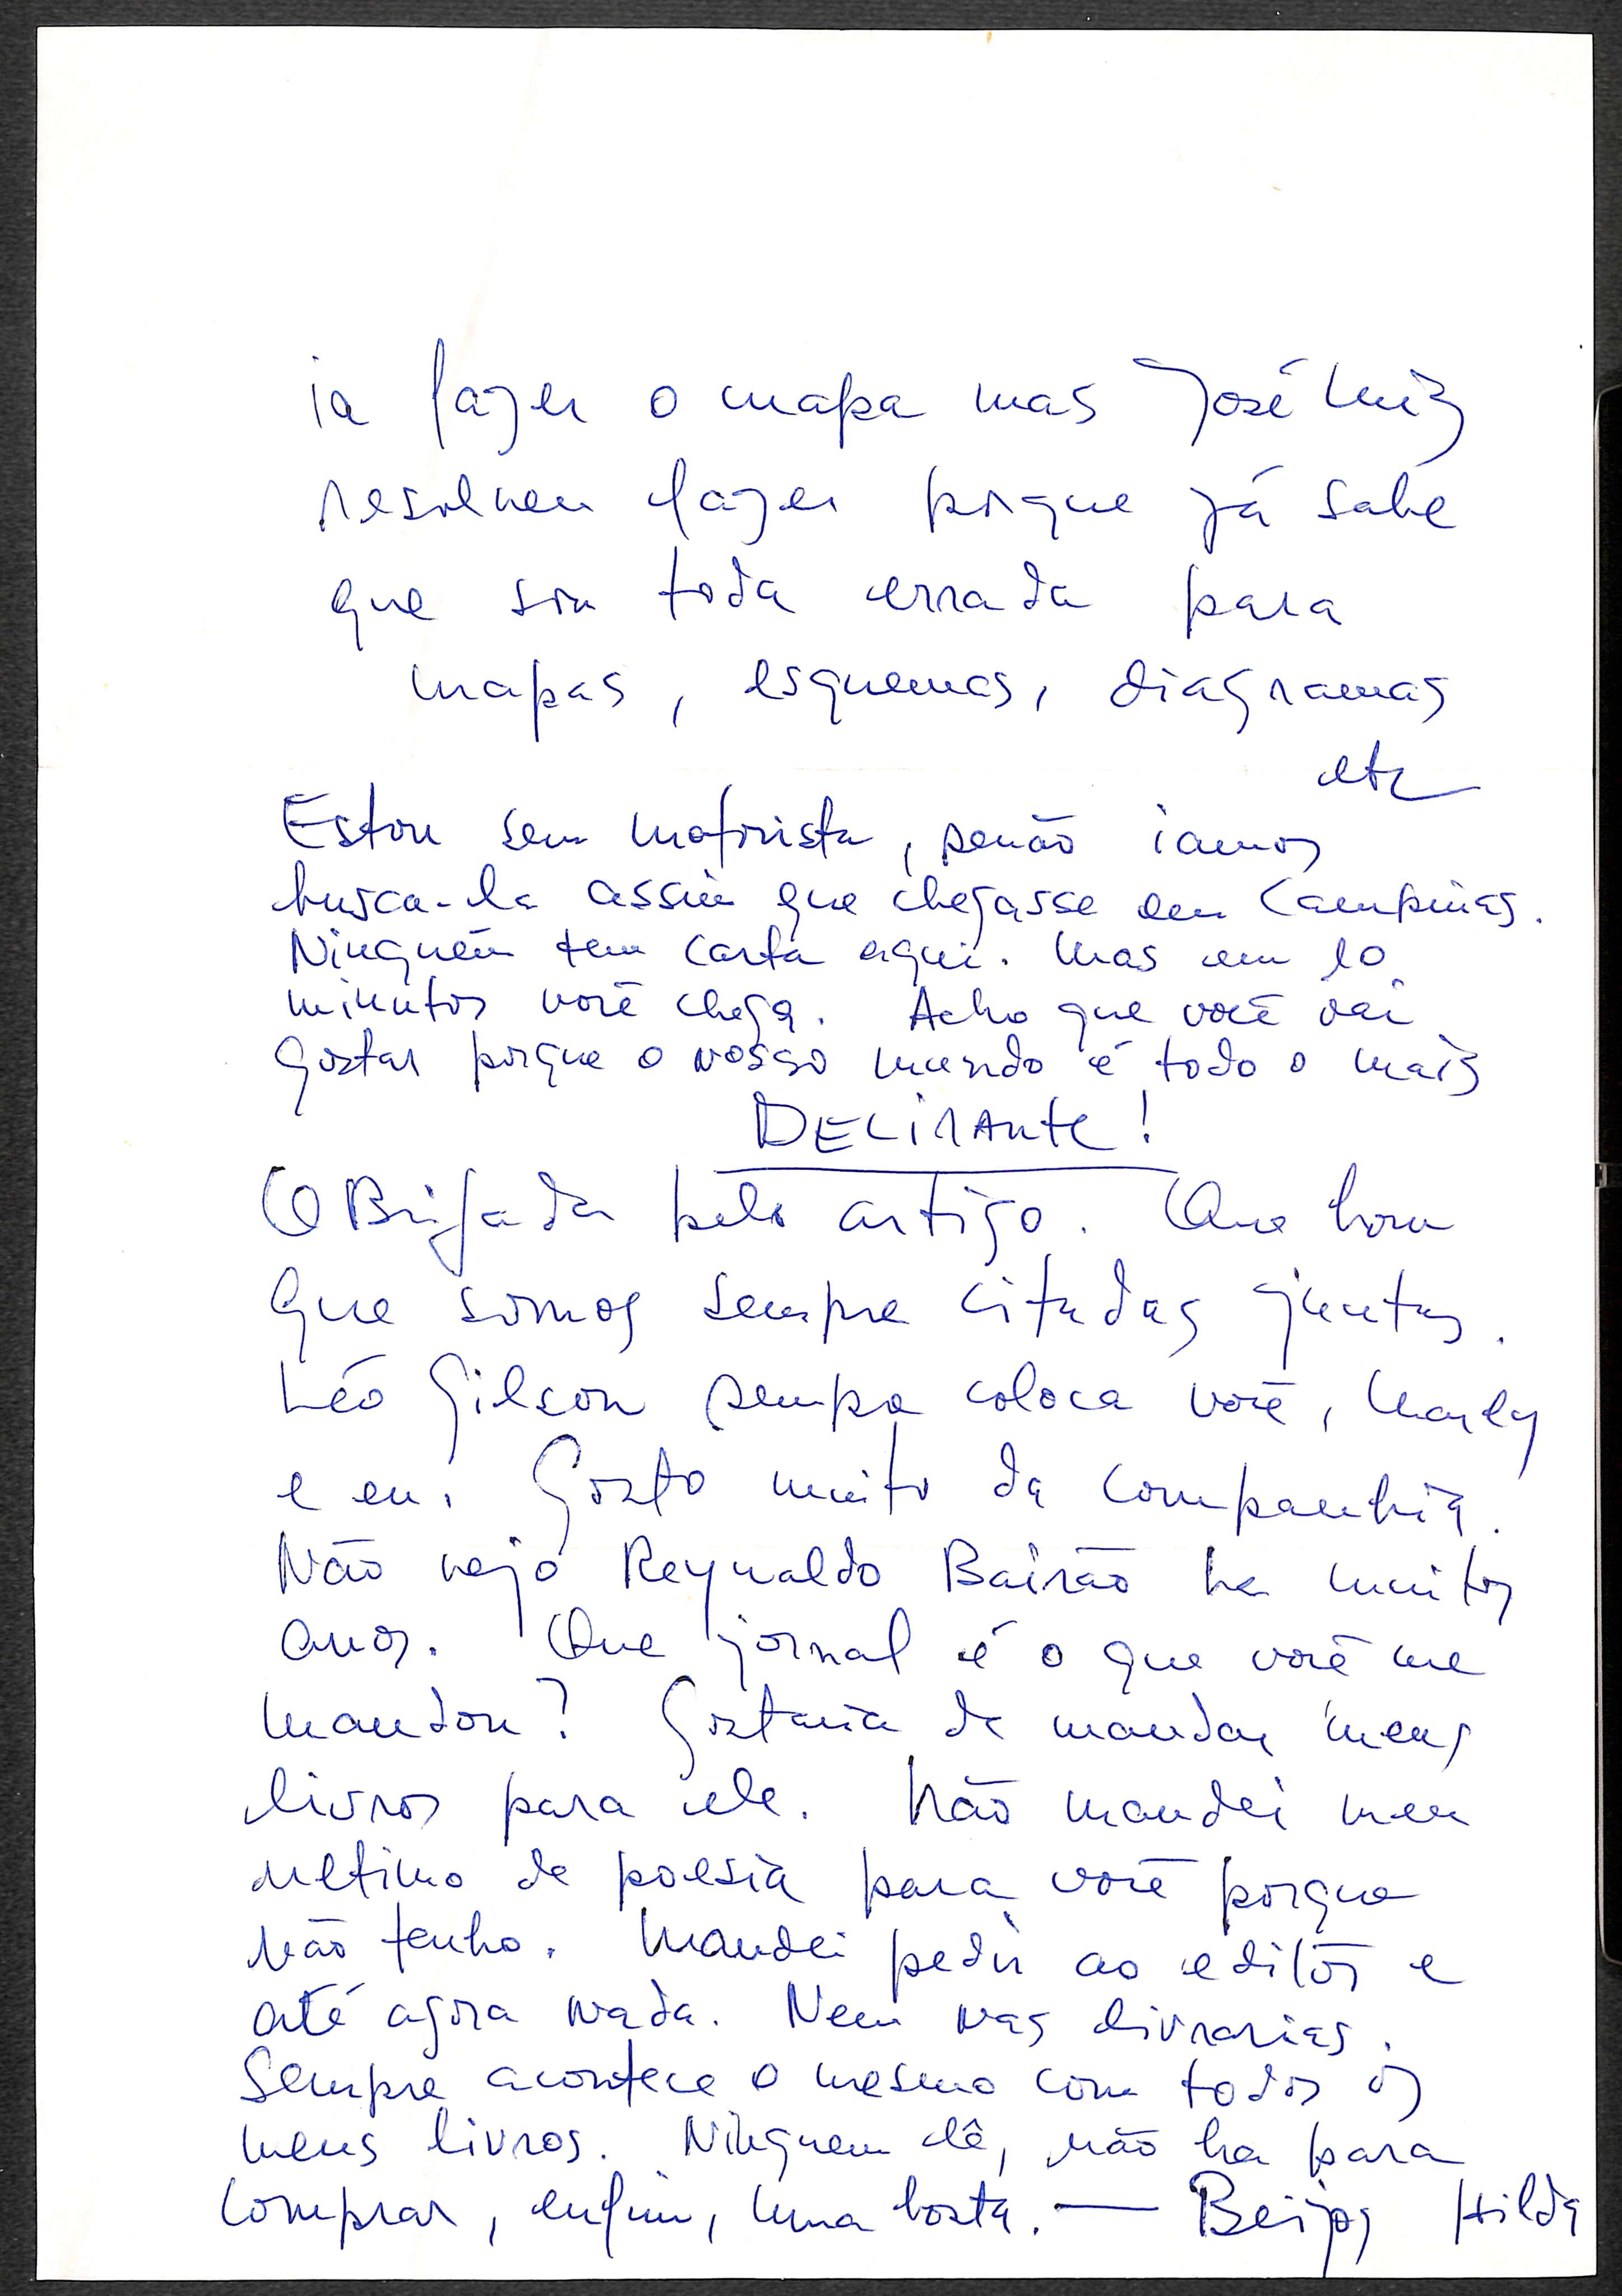 ia fazer o mapa mas José Luiz
resolveu fazer porque já sabe
que sou toda errada para
mapas, esquemas, diagramas
etc
Estou sem motorista, senão iamos
busca-la assim que chegasse em Campinas.
Ninguém tem carta aqui. Mas em 10
minutos você chega. Acho que você vai
gostar porque o nosso mundo é todo o mais
DELIRANTE!
OBrigada pelo artigo. Que bom
que somos sempre citadas juntas.
Léo Gilson sempre coloca você, Marly
e eu. Gosto muito da companhia.
Não vejo Reynaldo Bairão ha muitos
anos. Que jornal é o que você me
mandou? Gostaria de mandar meus
livros para ele. Não mandei meu
ultimo de poesia para você porque
não tenho. Mandei pedir ao editor e
até agora nada. Nem nas livrarias.
Sempre acontece o mesmo com todos os
meus livros. Ninguem lê, não ha para
comprar, enfim, uma bosta. — Beijos Hilda